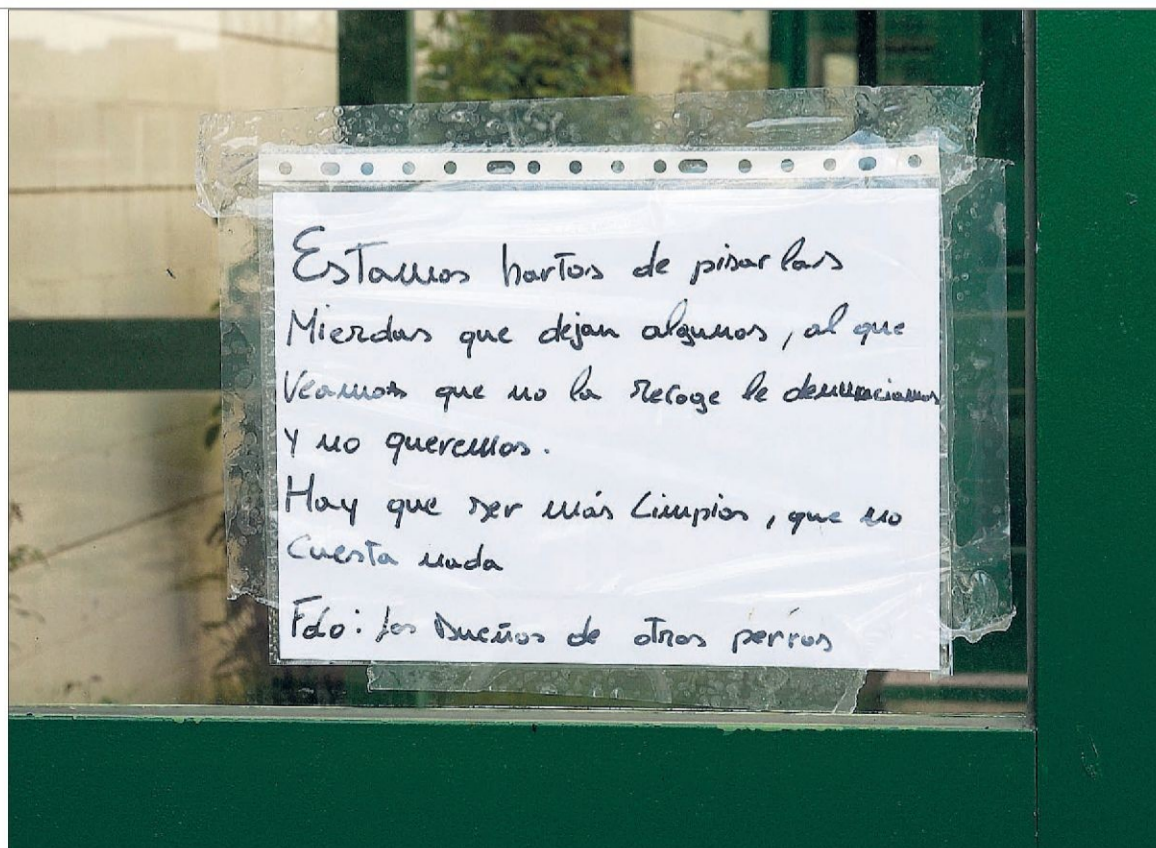 Estamos hartos de pisar las
Mierdas que dejan algunos, al que
Veamos que no la recoge le denunciamos
Y no queremos.
Hay que ser más Limpios, que no
Cuesta nada
Fdo: Los Dueños de otros perros